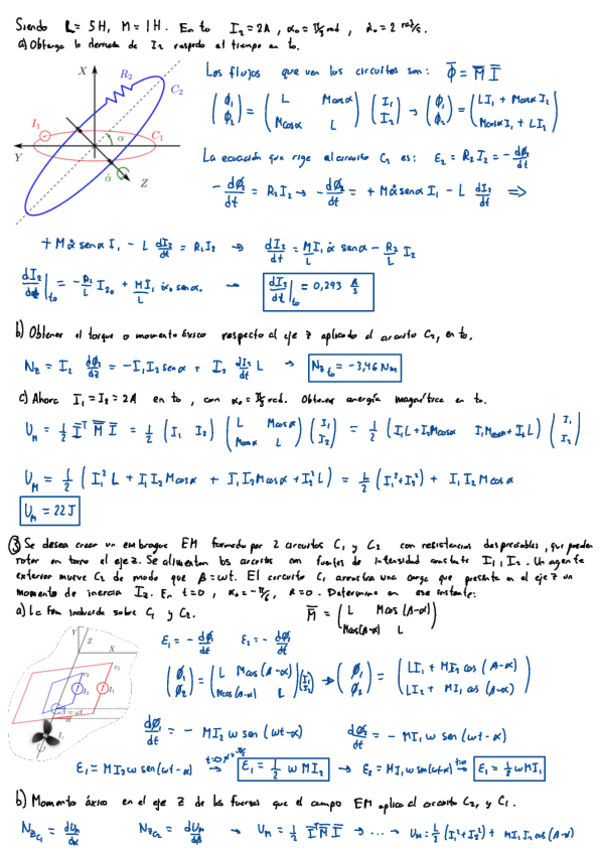 Siendo L = 5H, M = 1H. En t₀ I₂ = 2A, α₀ = π/3 rad, α̇₀ = 2 rad/s.
a) Obtenga la derivada de I₂ respecto al tiempo en t₀.
X
R₂
C₂
I₁
C₁
α
Y
α̇
Z
Los flujos que ven los circuitos son: Φ̄ = M̄ Ī
(ϕ₁ ϕ₂) = (L Mcosα Mcosα L) (I₁ I₂) → (ϕ₁ ϕ₂) = (LI₁ + Mcosα I₂ Mcosα I₁ + LI₂)
La ecuación que rige al circuito C₂ es: ε₂ = R₂I₂ = -dϕ₂/dt
-dϕ₂/dt = R₂I₂ → -dϕ₂/dt = + Mα̇ senα I₁ - L dI₂/dt ⇒
+ Mα̇ senα I₁ - L dI₂/dt = R₂I₂ → dI₂/dt = MI₁/L α̇ senα - R₂/L I₂
dI₂/dt|t₀ = -R₂/L I₂₀ + MI₁/L α̇₀ senα₀ → dI₂/dt|t₀ = 0,293 A/s
b) Obtener el torque o momento áxico respecto al eje Z aplicado al circuito C₂, en t₀.
N_Z = I₂ dϕ₂/dZ = -I₁I₂ senα + I₂ dI₂/dt L → N_Z t₀ = -3,46 Nm
c) Ahora I₁ = I₂ = 2A en t₀, con α₀ = π/3 rad. Obtener energía magnética en t₀.
U_M = 1/2 Īᵀ M̄ Ī = 1/2 (I₁ I₂) (L Mcosα Mcosα L) (I₁ I₂) = 1/2 (I₁L + I₂Mcosα I₁Mcosα + I₂L) (I₁ I₂)
U_M = 1/2 (I₁²L + I₁I₂Mcosα + I₁I₂Mcosα + I₂²L) = L/2 (I₁² + I₂²) + I₁I₂Mcosα
U_M = 22 J
③ Se desea crear un embrague EM formado por 2 circuitos C₁ y C₂ con resistencias despreciables, que pueden
rotar en torno al eje Z. Se alimentan los circuitos con fuentes de intensidad constante I₁, I₂. Un agente
exterior mueve C₂ de modo que β = ωt. El circuito C₁ arrastra una carga que presenta en el eje Z un
momento de inercia I_Z. En t = 0, α₀ = -π/6, α̇ = 0. Determine en ese instante:
a) La fem inducida sobre C₁ y C₂.
M̄ = (L Mcos(β-α) Mcos(β-α) L)
Y
Z
X
C₁
C₂
I₂
I₁
β = ωt
α
ε₁ = -dϕ₁/dt ε₂ = -dϕ₂/dt
(ϕ₁ ϕ₂) = (L Mcos(β-α) Mcos(β-α) L) (I₁ I₂) → (ϕ₁ ϕ₂) = (LI₁ + MI₂ cos(β-α) LI₂ + MI₁ cos(β-α))
dϕ₁/dt = - MI₂ω sen(ωt-α) dϕ₂/dt = - MI₁ω sen(ωt-α)
ε₁ = MI₂ω sen(ωt-α) → ε₁ = 1/2 ωMI₂ → ε₂ = MI₁ω sen(ωt-α) → ε₂ = 1/2 ωMI₁
b) Momento áxico en el eje Z de las fuerzas que el campo EM aplica al circuito C₂, y C₁.
N_Z C₁ = dU_M/dα N_Z C₂ = dU_M/dβ → U_M = 1/2 Īᵀ M̄ Ī → ... → U_M = L/2 (I₁² + I₂²) + MI₁I₂ cos(β-α)